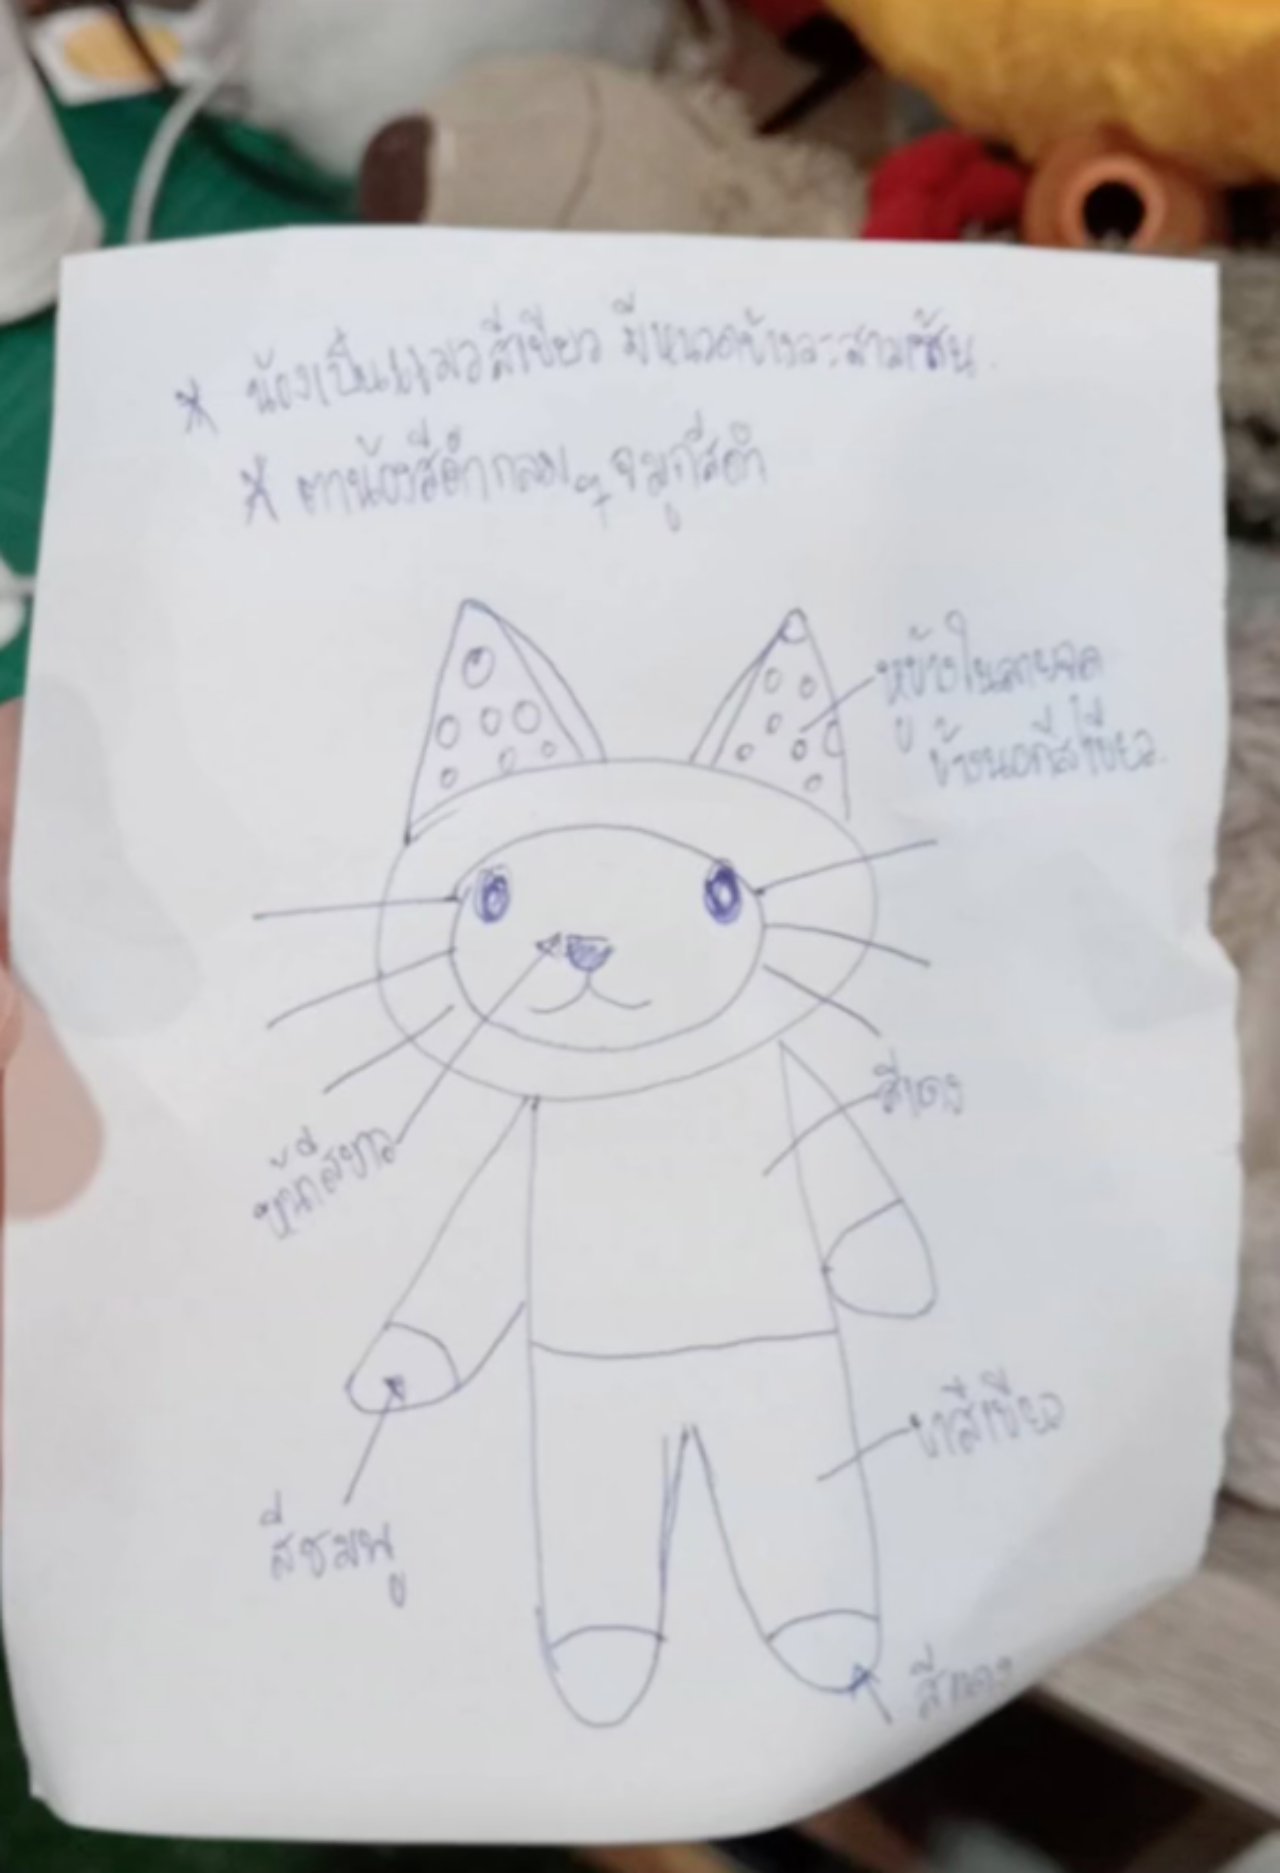 * น้องเป็นแมวสีเขียว มีหนวดข้างละสามเส้น
* ตาน้องสีดำกลมๆ จมูกสีดำ
หูข้างในลายจุด
ข้างนอกสีเขียว
สีแดง
หน้าสีขาว
ขาสีเขียว
สีชมพู
สีแดง